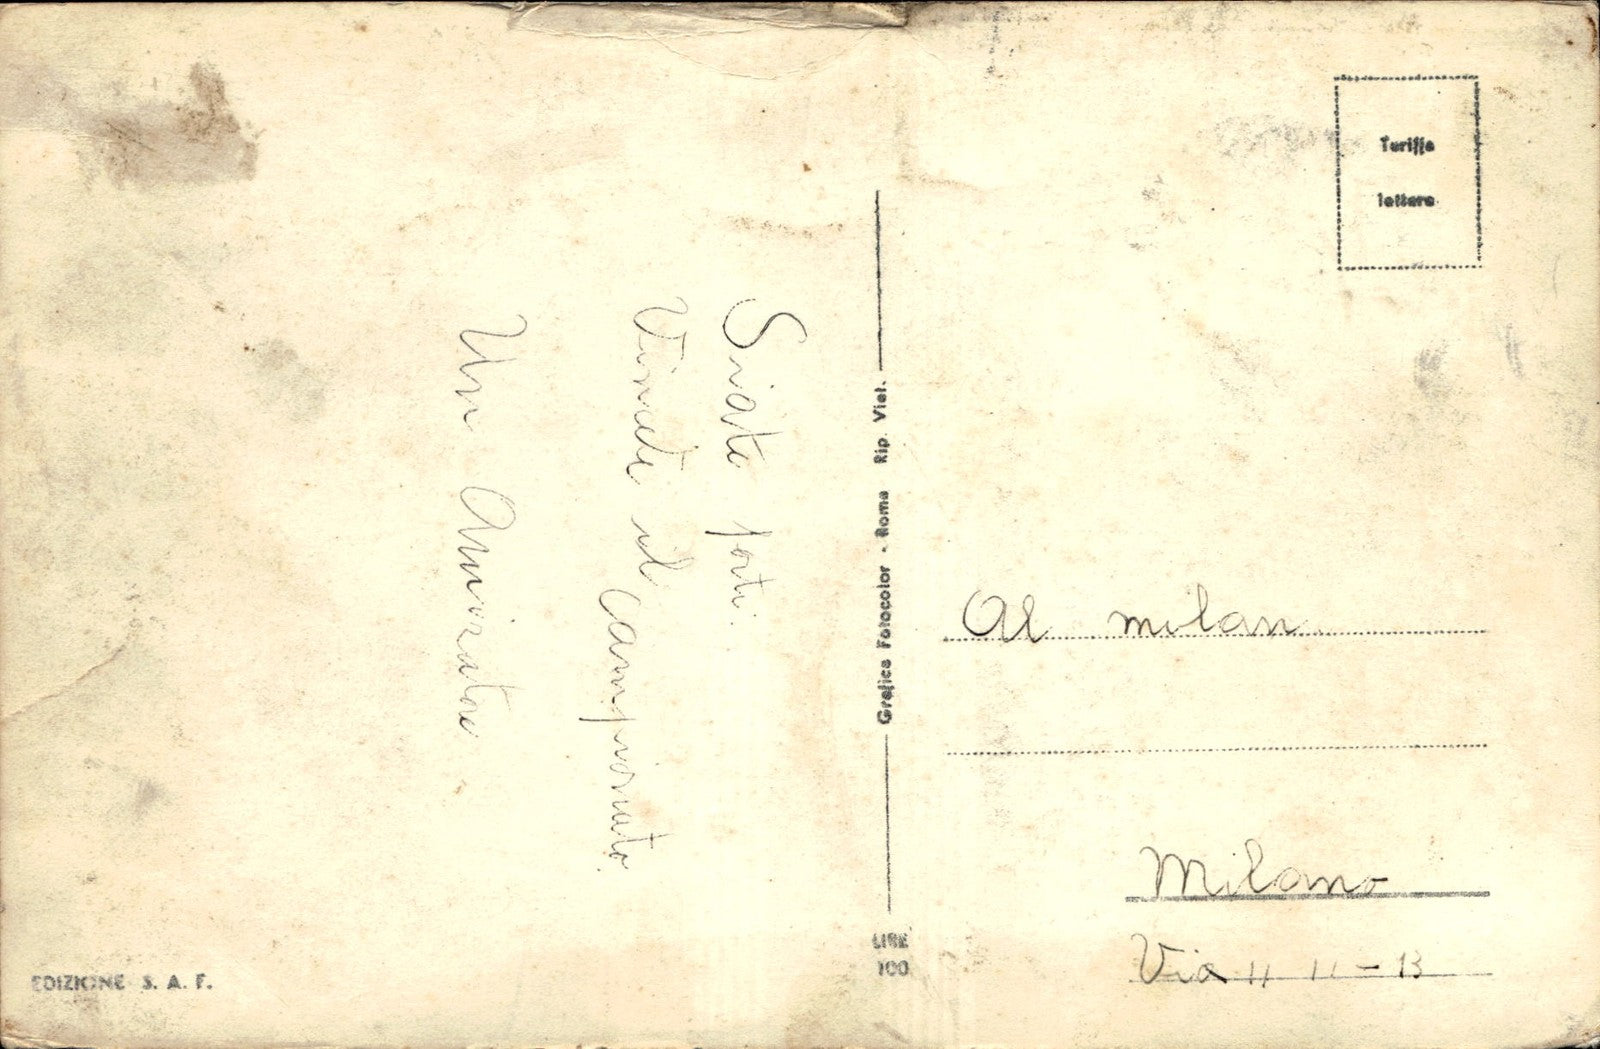 Siate forti.
Vincete il campionato
Un Amiratore.
Grafica Fotocolor - Roma Rip. Viet.
Tariffa
lettere
Al milan
Milano
Via 11 11 - 13
LIRE
100
EDIZIONE S. A. F.